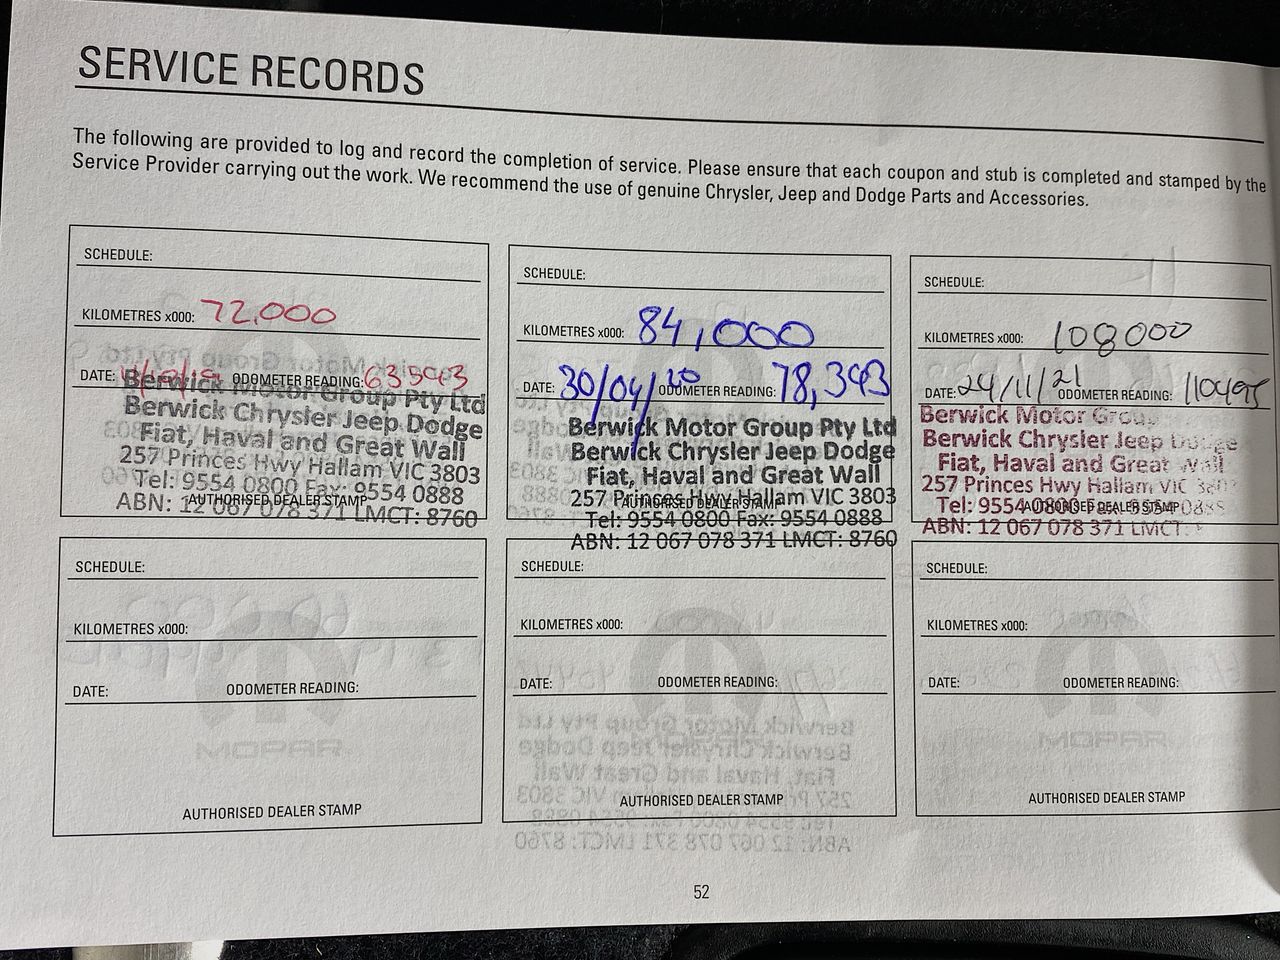 SERVICE RECORDS
The following are provided to log and record the completion of service. Please ensure that each coupon and stub is completed and stamped by the
Service Provider carrying out the work. We recommend the use of genuine Chrysler, Jeep and Dodge Parts and Accessories.
SCHEDULE:
KILOMETRES x000: 72,000
DATE: ODOMETER READING:
Berwick Motor Group Pty Ltd
Berwick Chrysler Jeep Dodge
Fiat, Haval and Great Wall
257 Princes Hwy Hallam VIC 3803
Tel: 9554 0800 Fax: 9554 0888
AUTHORISED DEALER STAMP
ABN: 12 067 078 371 LMCT: 8760
SCHEDULE:
KILOMETRES x000: 84,000
DATE: 30/04/20 ODOMETER READING: 78,393
Berwick Motor Group Pty Ltd
Berwick Chrysler Jeep Dodge
Fiat, Haval and Great Wall
257 Princes Hwy Hallam VIC 3803
AUTHORISED DEALER STAMP
Tel: 9554 0800 Fax: 9554 0888
ABN: 12 067 078 371 LMCT: 8760
SCHEDULE:
KILOMETRES x000: 108000
DATE: 24/11/21 ODOMETER READING: 110495
Berwick Motor Group
Berwick Chrysler Jeep Dodge
Fiat, Haval and Great Wall
257 Princes Hwy Hallam VIC 3803
Tel: 9554 0800
AUTHORISED DEALER STAMP
ABN: 12 067 078 371 LMCT:
SCHEDULE:
KILOMETRES x000:
DATE: ODOMETER READING:
MOPAR
AUTHORISED DEALER STAMP
SCHEDULE:
KILOMETRES x000:
DATE: ODOMETER READING:
AUTHORISED DEALER STAMP
SCHEDULE:
KILOMETRES x000:
DATE: ODOMETER READING:
MOPAR
AUTHORISED DEALER STAMP
52